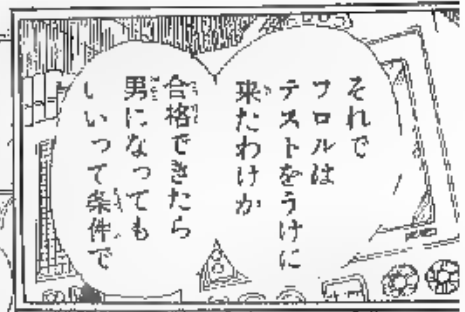 それで
フロルは
テストをうけに
来たわけか
合格できたら
男になっても
いいって条件で